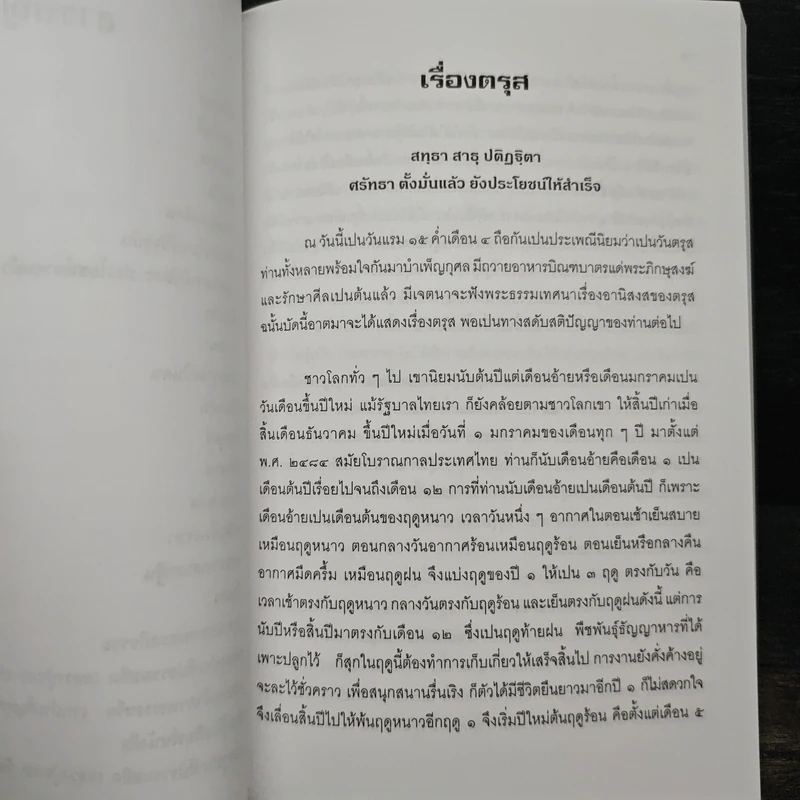 เรื่องตรุส
สทฺธา สาธุ ปติฏฺฐิตา
ศรัทธา ตั้งมั่นแล้ว ยังประโยชน์ให้สำเร็จ
ณ วันนี้เปนวันแรม ๑๕ ค่ำเดือน ๔ ถือกันเปนประเพณีนิยมว่าเปนวันตรุส
ท่านทั้งหลายพร้อมใจกันมาบำเพ็ญกุศล มีถวายอาหารบิณฑบาตรแด่พระภิกษุสงฆ์
และรักษาศีลเปนต้นแล้ว มีเจตนาจะฟังพระธรรมเทศนาเรื่องอานิสงสของตรุส
ฉนั้นบัดนี้อาตมาจะได้แสดงเรื่องตรุส พอเปนทางสดับสติปัญญาของท่านต่อไป
ชาวโลกทั่ว ๆ ไป เขานิยมนับต้นปีแต่เดือนอ้ายหรือเดือนมกราคมเปน
วันเดือนขึ้นปีใหม่ แม้รัฐบาลไทยเรา ก็ยังคล้อยตามชาวโลกเขา ให้สิ้นปีเก่าเมื่อ
สิ้นเดือนธันวาคม ขึ้นปีใหม่เมื่อวันที่ ๑ มกราคมของเดือนทุก ๆ ปี มาตั้งแต่
พ.ศ. ๒๔๘๔ สมัยโบราณกาลประเทศไทย ท่านก็นับเดือนอ้ายคือเดือน ๑ เปน
เดือนต้นปีเรื่อยไปจนถึงเดือน ๑๒ การที่ท่านนับเดือนอ้ายเปนเดือนต้นปี ก็เพราะ
เดือนอ้ายเปนเดือนต้นของฤดูหนาว เวลาวันหนึ่ง ๆ อากาศในตอนเช้าเย็นสบาย
เหมือนฤดูหนาว ตอนกลางวันอากาศร้อนเหมือนฤดูร้อน ตอนเย็นหรือกลางคืน
อากาศมืดครึ้ม เหมือนฤดูฝน จึงแบ่งฤดูของปี ๑ ให้เปน ๓ ฤดู ตรงกับวัน คือ
เวลาเช้าตรงกับฤดูหนาว กลางวันตรงกับฤดูร้อน และเย็นตรงกับฤดูฝนดังนี้ แต่การ
นับปีหรือสิ้นปีมาตรงกับเดือน ๑๒ ซึ่งเปนฤดูท้ายฝน พืชพันธุ์ธัญญาหารที่ได้
เพาะปลูกไว้ ก็สุกในฤดูนี้ต้องทำการเก็บเกี่ยวให้เสร็จสิ้นไป การงานยังคั่งค้างอยู่
จะละไว้ชั่วคราว เพื่อสนุกสนานรื่นเริง ก็ตัวได้มีชีวิตยืนยาวมาอีกปี ๑ ก็ไม่สดวกใจ
จึงเลื่อนสิ้นปีไปให้พ้นฤดูหนาวอีกฤดู ๑ จึงเริ่มปีใหม่ต้นฤดูร้อน คือตั้งแต่เดือน ๕